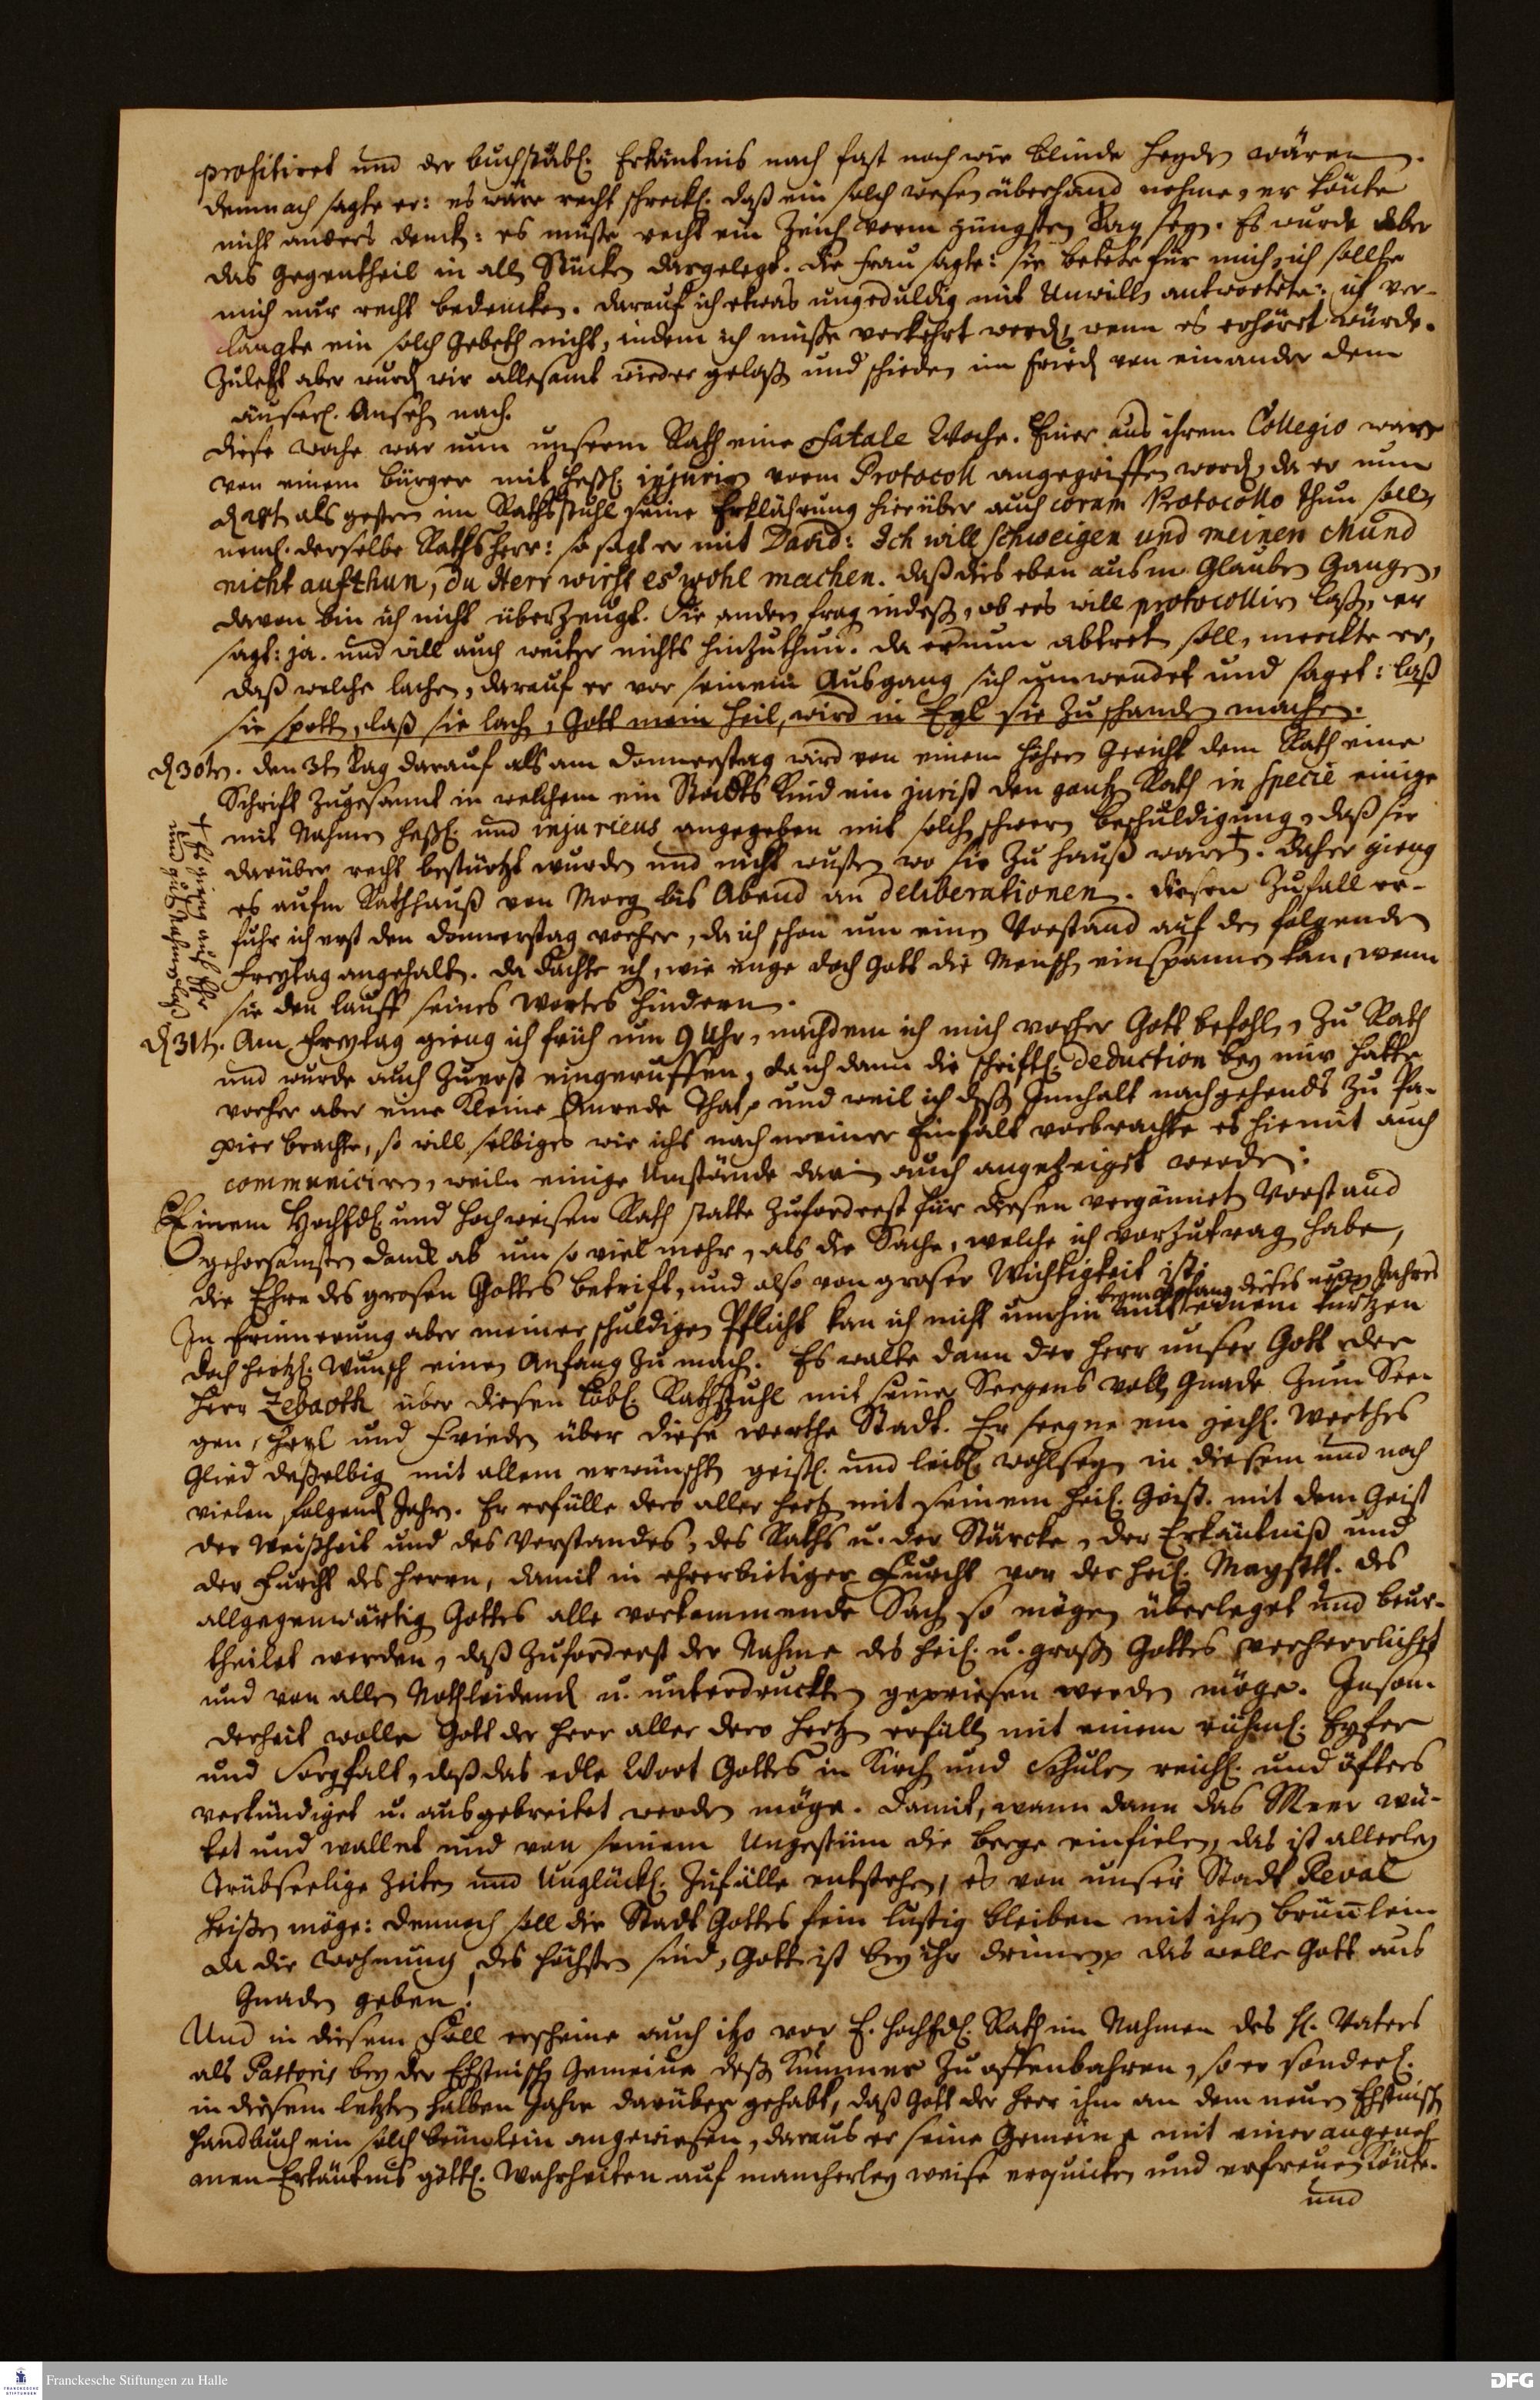 profitiret und der buchstäbl. Erkäntnis nach fast noch wie blinde Heyden wären.
demnach sagte er: es wäre recht schreckl. daß ein solch wesen überhand nehme, er könte
nicht anders dencken: es müste recht ein Zeichen vorm jüngsten Tag seyn. Es wurde aber
das Gegentheil in allen Stücken dargelegt. die Frau sagte: sie betete für mich, ich sollte
mich nur recht bedencken. darauf ich etwas ungeduldig mit Unwillen antwortete: ich ver-
langte ein solch Gebeth nicht, indem ich müste verkehrt werden, wenn es erhöret würde.
Zuletzt aber wurden wir allesamt wieder gelaßen und schieden im Frieden von einander dem
äuserl. Ansehen nach.
diese woche war nun unserm Rath eine fatale Woche. Einer aus ihrem Collegio ware
von einem Bürger mit heßl. injurien vorm Protocoll angegriffen worden, da er nun
als gestern im Rathsstuhl seine Erklährung hierüber auch coram Protocollo thun sollen
neml. derselbe Rathsherr: so sagt er mit David: Ich will schweigen und meinen Mund
nicht aufthun, du Herr wirst es wohl machen. daß dis eben ausm Glauben Gangen,
davon bin ich nicht überzeugt. Die andern fragen indeßen, ob ers will protocolliren laßen, er
sagt: ja. und will auch weiter nichts hinzuthun. da er nun abtreten soll, merckte er,
daß welche lachen, darauf er vor seinem Ausgang sich umwendet und saget: laß
sie spotten, laß sie lachen, Gott mein Heil, wird in Eyl sie zu schanden machen.
d 30ten. den 3ten Tag darauf als am Donnerstag wird von einem höhern Gericht dem Rath eine
Schrift zugesannt in welchem ein Stadts Kind ein jurist den gantzen Rath in specie einige
mit Nahmen heßl. und injurieus angegeben mit solchen schweren beschuldigungen, daß sie
darüber recht bestürtzt wurden und nicht wusten wo sie zu hauß waren†. daher gieng
es aufm Rathhauß von Morgen bis Abend an deliberationen. diesen Zufall er-
fuhr ich erst den Donnerstag vorher, da ich schon um einen Vorstand auf den folgenden
Freytag angehalten. da dachte ich, wie enge doch Gott die Menschen einspannen kan, wenn
sie den lauff seines Wortes hindern.
† Es gieng auf Ehr
und guten Nahmen loß
d 31ten. Am Freytag gieng ich früh um 9 Uhr, nachdem ich mich vorher Gott befohlen, zu Rath
und wurde auch zuerst eingeruffen, da ich dann die schriftl. deduction bey mir hatte
vorher aber eine kleine Anrede that, und weil ich deßen Innhalt nachgehends zu Pa-
pier brachte, so will selbiges wie ichs nach meiner Einfalt vorbrachte es hiemit auch
communiciren, weiln einige Umstände darin auch angezeiget werden:
Einem HochEdl. und Hochweisen Rath statte zuforderst für diesen vergönneten Vorstand
gehorsamsten danck ab um so viel mehr, als die Sache, welche ich vorzutragen habe,
die Ehre des grosen Gottes betrift, und also von groser Wichtigkeit ist.
beym anfang dieses neuen Jahres
In Erinnerung aber meiner schuldigen Pflicht kan ich nicht umhin mit einem kurtzen
doch hertzl. Wunsch einen Anfang zu machen. Es walte dann der Herr unser Gott der
Herr Zebaoth über diesen löbl. Rathsstuhl mit seiner Seegens vollen Gnade zum See-
gen, Heyl und Frieden über diese werthe Stadt. Er seegne ein jegl. werthes
Glied deßelbigen mit allem erwünschten geistl. und leibl. wohlseyn in diesem und noch
vielen folgenden Jahren. Er erfülle dero aller Hertz mit seinem heil. Geist. mit dem Geist
der Weißheit und des Verstandes, des Raths u. der Stärcke, der Erkäntniß und
der Furcht des Herrn, damit in ehrerbietiger Furcht vor der heil. Mayestet. des
allgegenwärtigen Gottes alle vorkommende Sachen so mögen überleget und beur-
theilet werden, daß zuforderst der Nahme des heil. u. großen Gottes verherrlichet
und von allen Nothleidenden u. unterdruckten gepriesen werden möge. Inson-
derheit wolle Gott der Herr aller dero Hertzen erfüllen mit einem rühml. Eyfer
und Sorgfalt, daß das edle Wort Gottes in Kirchen und Schulen reichl. und öfters
verkündiget u. ausgebreitet werden möge. damit, wann dann das Meer wü-
tet und wallet und von seinem Ungestüm die berge einfielen, das ist allerley
Trübseelige Zeiten und Unglückl. Zufälle entstehen, es von unser Stadt Reval
heißen möge: dennoch soll die Stadt Gottes fein lustig bleiben mit ihren brünnlein
da die Wohnung des höchsten sind, Gott ist bey ihr drinnen, das wolle Gott aus
Gnaden geben!
Und in diesem Fall erscheine auch itzo vor E. HochEdl. Rath im Nahmen des H. Vaters
als Pastoris bey der Ehstnischen Gemeine deßen Kummer zu offenbahren, so er sonderl.
in diesem letzten halben Jahre darüber gehabt, daß Gott der Herr ihm an dem neuen Ehstnischen
handbuch ein solch brünnlein angewiesen, daraus er seine Gemeine mit einer angeneh
men Erkäntnis göttl. Wahrheiten auf mancherley weise erquicken und erfreuen könte.
und
Franckesche Stiftungen zu Halle
DFG